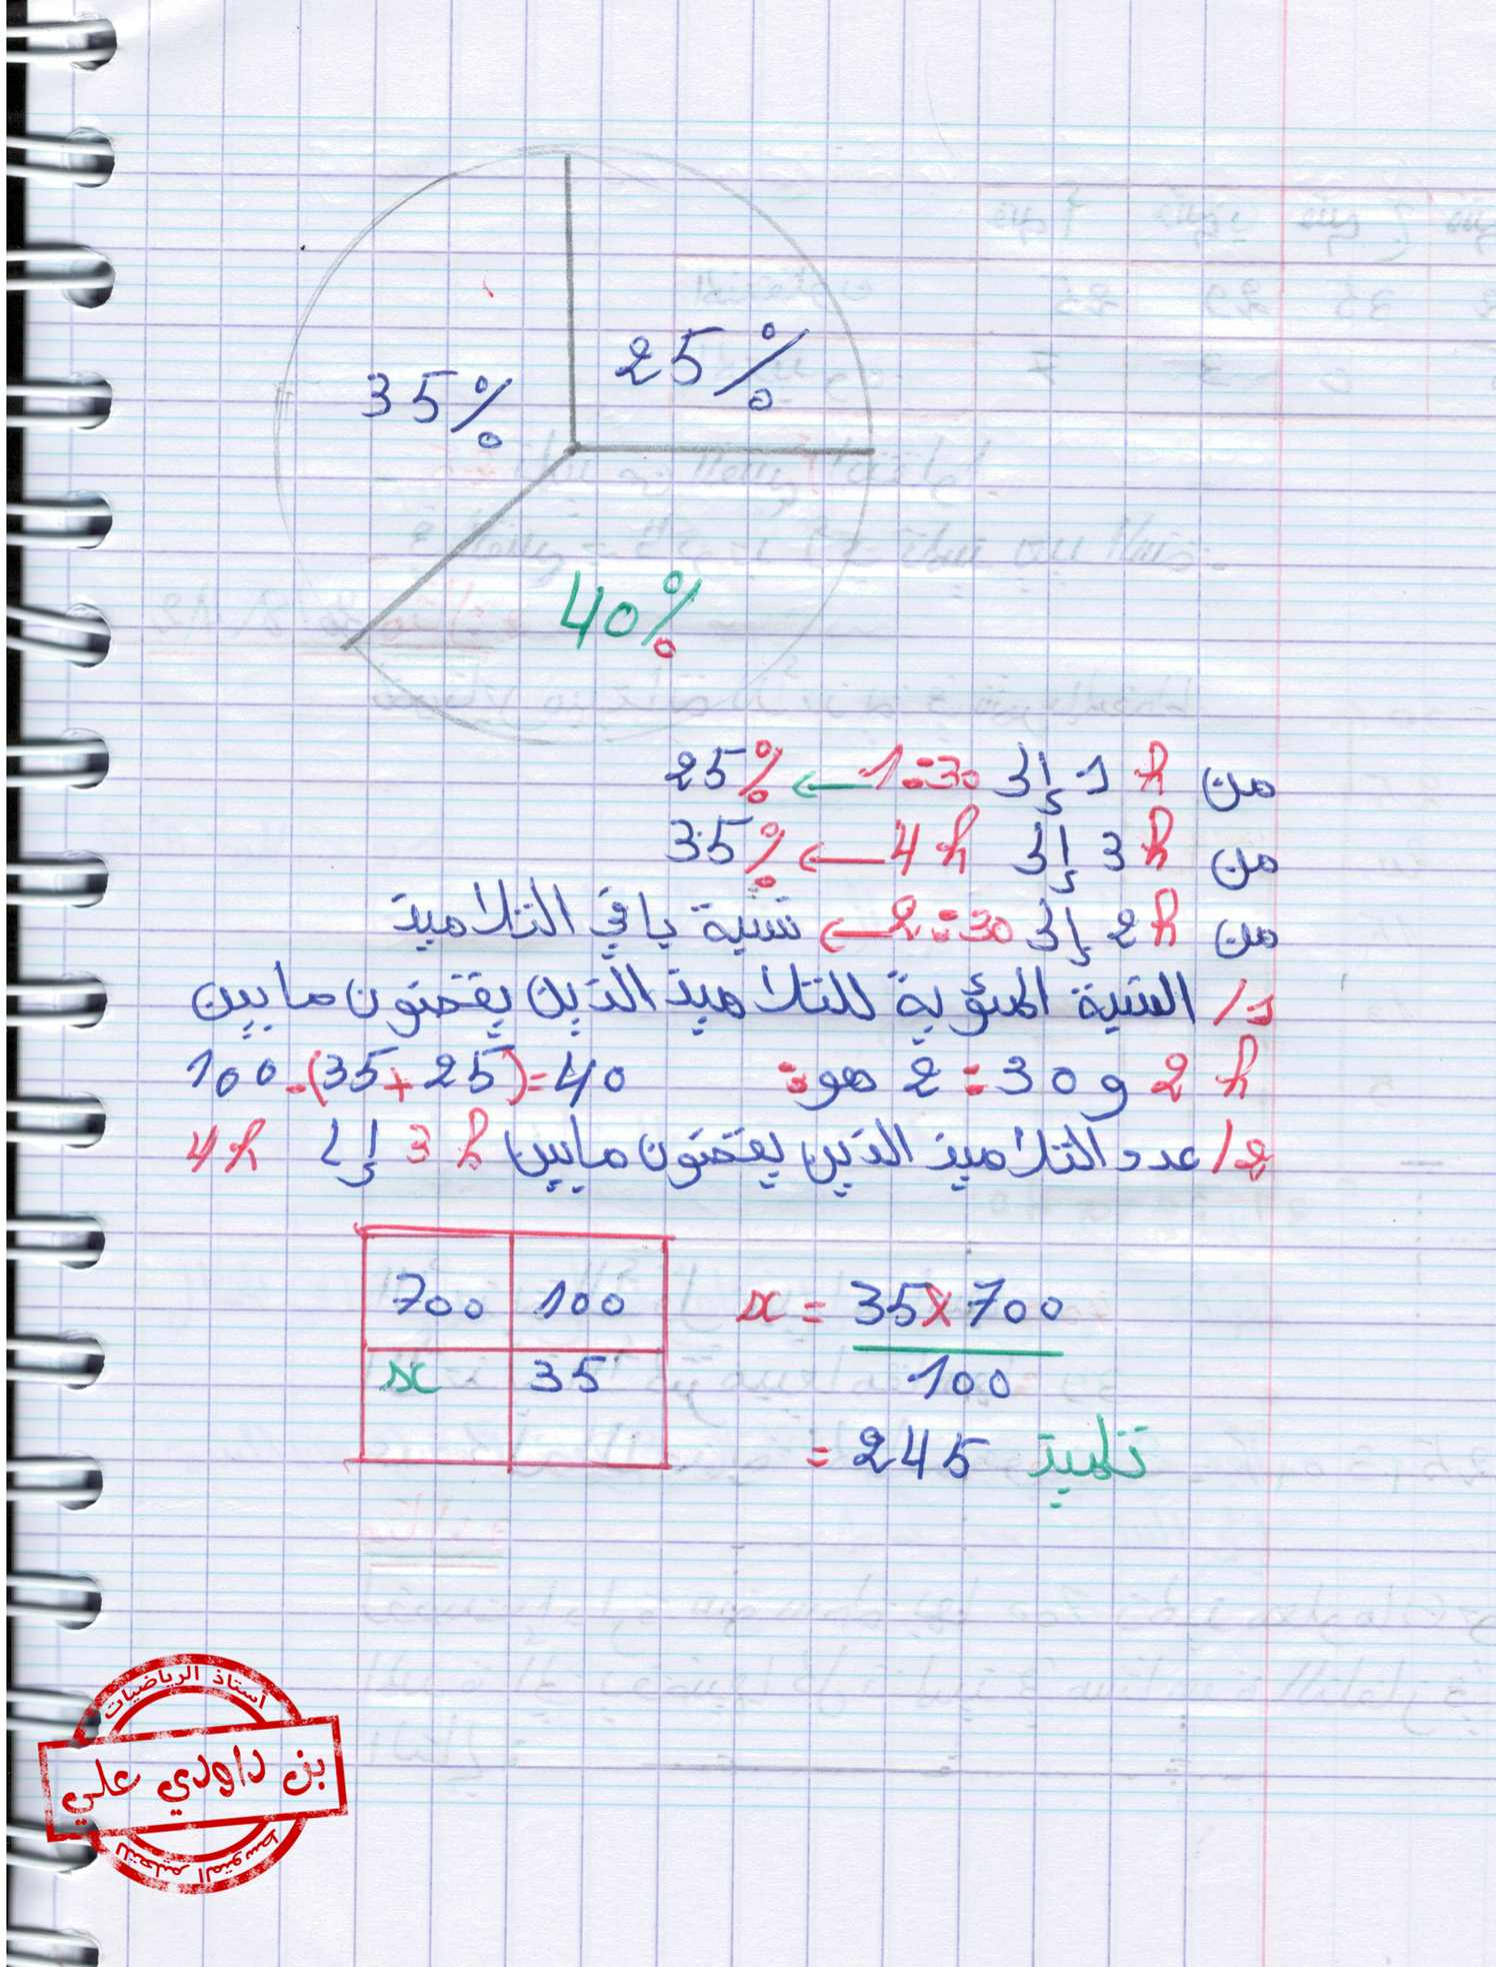 35%
25%
40%
من 1 h إلى 1:30 ← 25%
من 3 h إلى 4 h ← 35%
من 2 h إلى 2:30 ← نسبة باقي التلاميذ
1/ النسبة المئوية للتلاميذ الذين يقضون ما بين
2 h و 2:30 هو:  100-(35+25)=40
2/ عدد التلاميذ الذين يقضون ما بين 3 h إلى 4 h
700 100
x 35
x = 35×700
100
= 245 تلميذ
أستاذ الرياضيات
بن داودي علي
للتعليم المتوسط